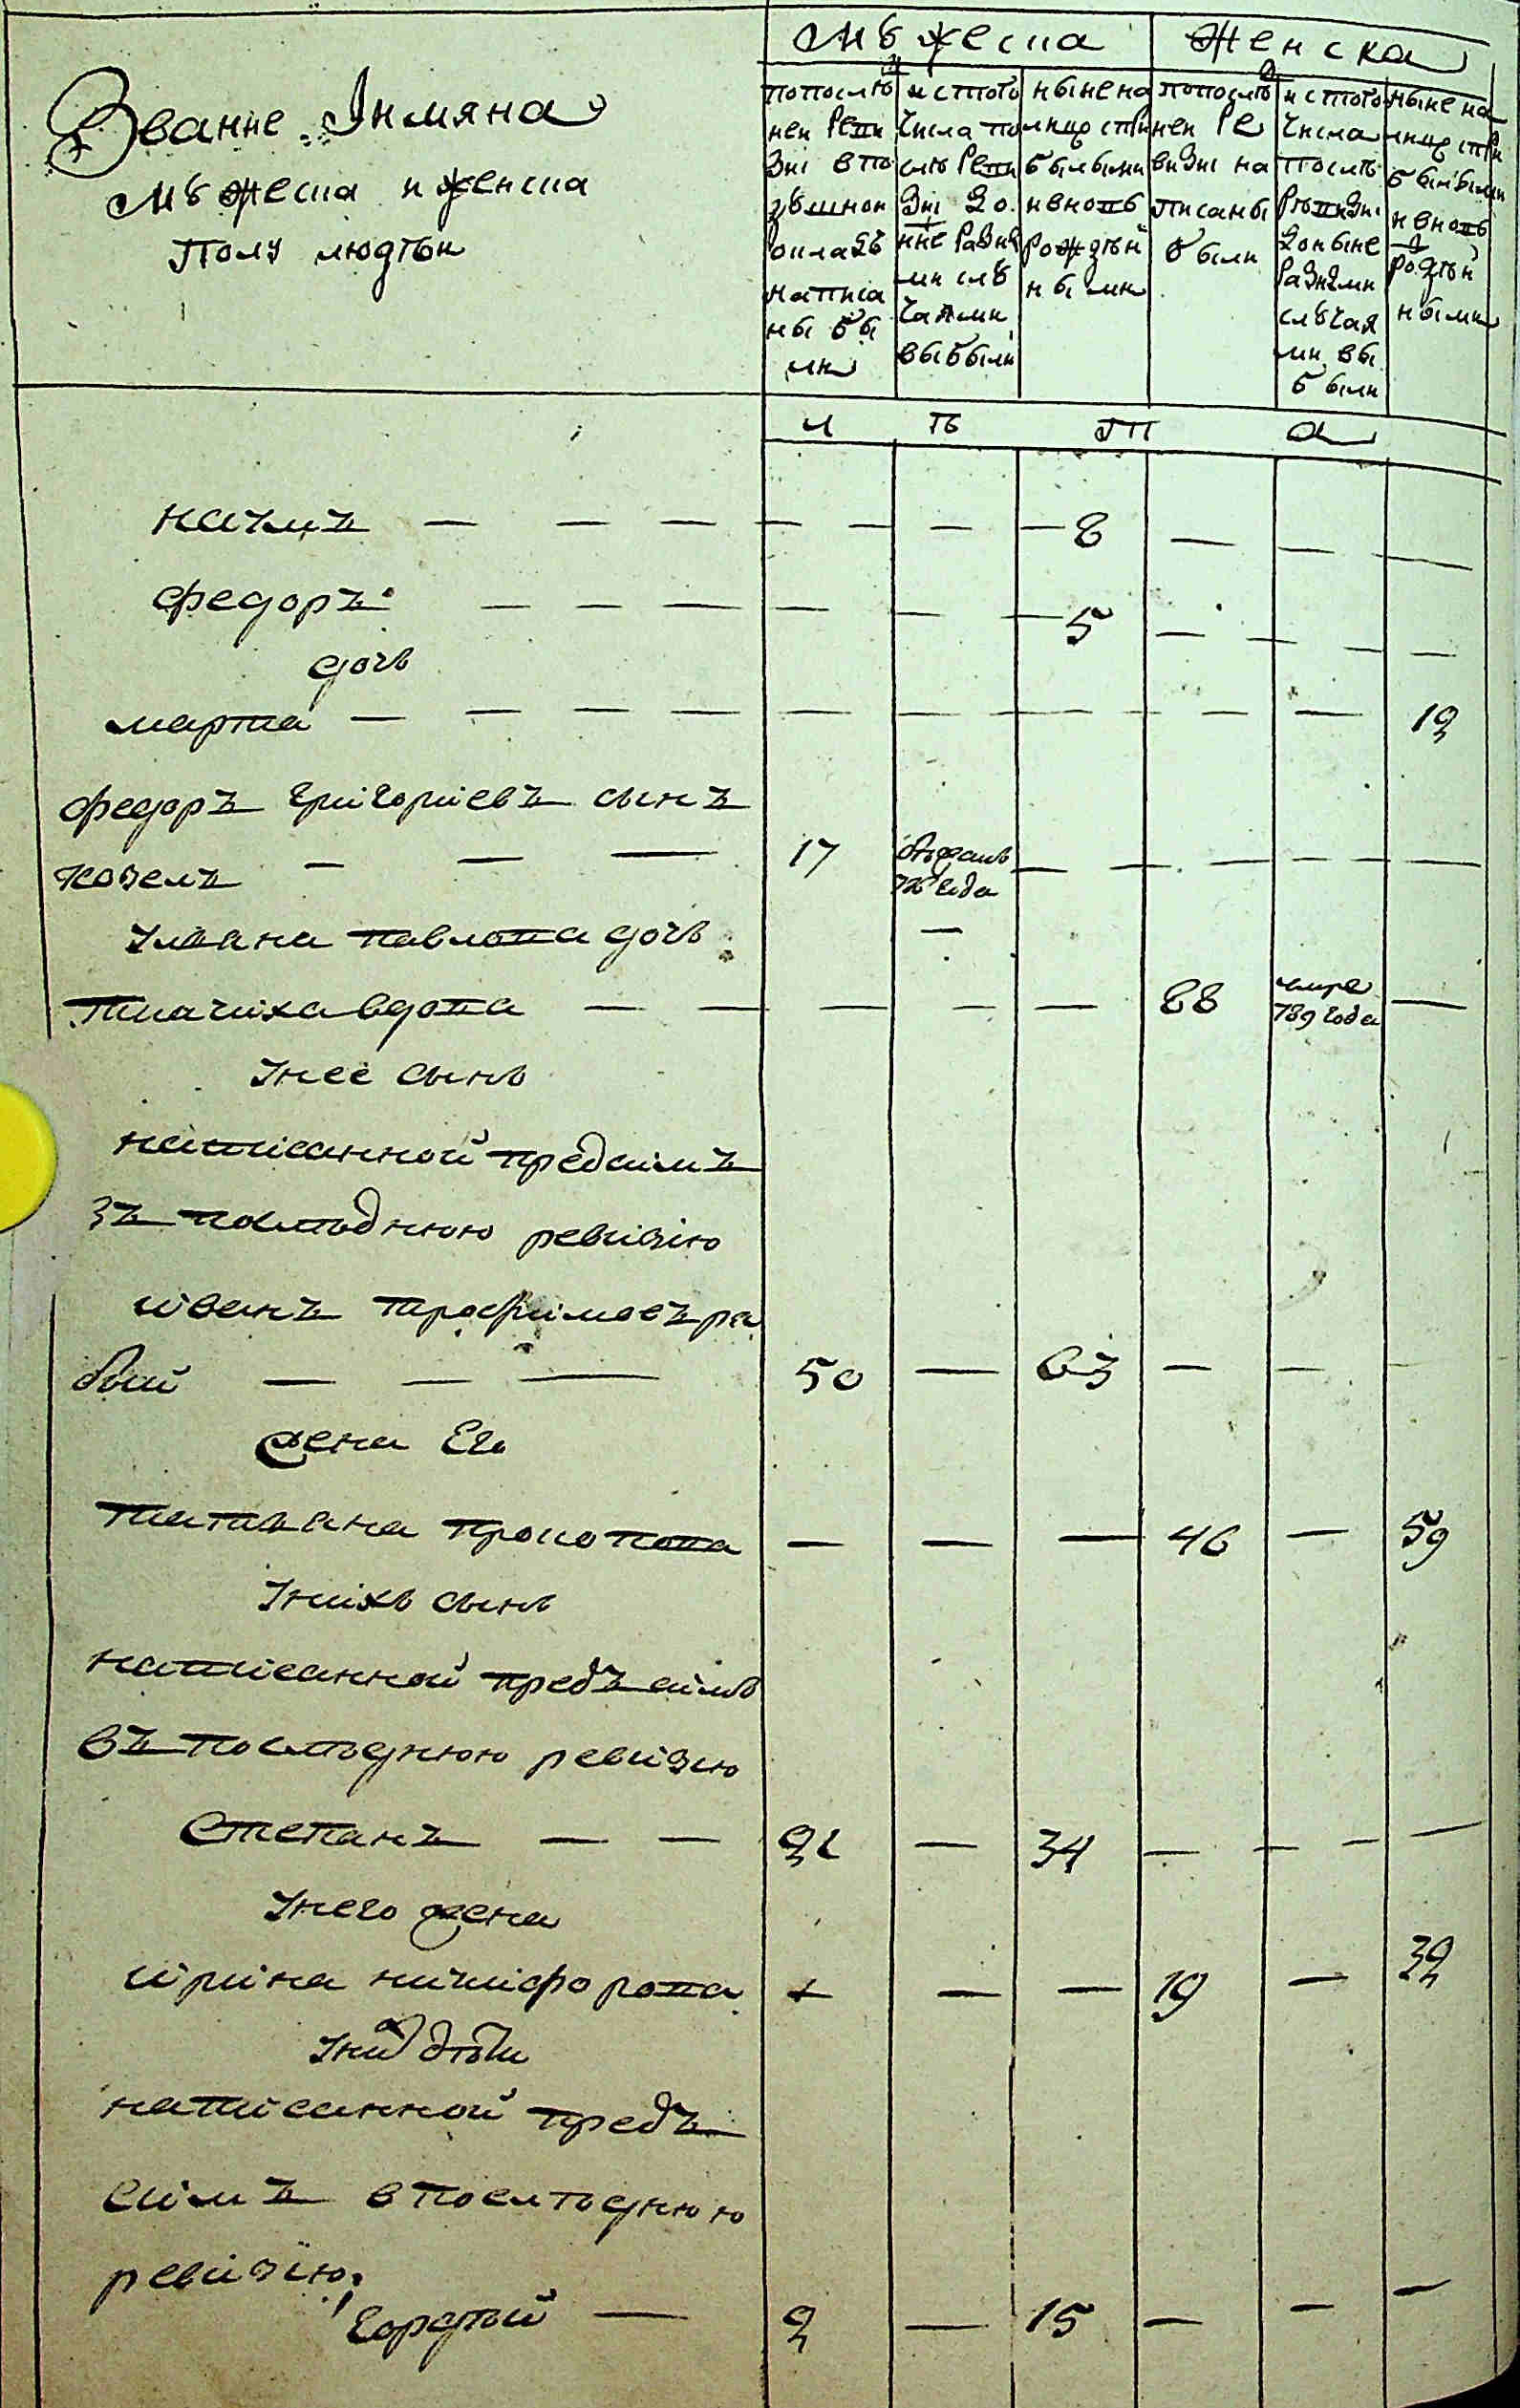 Мужеска
Женска
Звание Їимяна
Мужеска и женска
Полу людѣи
попослѣ
неи Реви
зиї впо
душнои
окладъ
написа
ны бы
ли
истого
Числа по
слѣ Реви
зиї до
нне разны
ми слу
чаями
выбыли
ныне на
лицо сти
былыми
ивновь
рожден
ными
попослѣ
неи Ре
визиї на
писаны
были
истого
Числа
послѣ
Ревизиї
доныне
разными
случая
ми вы
были
ныне на
лицо сти
былыми
ивновь
рожден
ными
л ѣ т а
— — — — — — — 8 — — —
федоръ — — — — — — 5 — — — —
дочь
марта — — — — — — — — — — 12
федоръ григориевъ сынъ
козелъ — — — 17 отданъ — — — — —
786 года
Ульяна павлова дочь —
Ткачиха вдова — — — — — 88 умре —
789 года
Унее сынъ
написанной предсимъ
въ последнюю ревизию
иванъ трофимовъ ря
бый — — — 50 — 63 — —
жена Его
татьяна прокопова — — — 46 — 59
Унихъ сынъ
написанной предъ симъ
въ последнюю ревизию
Степанъ — — 21 — 34 — — — —
Унего жена
ирина никифорова — — — 19 — 32
Уних дѣти
написанной предъ
симъ в последнюю
ревизию.
Гордѣй — 2 — 15 — — —